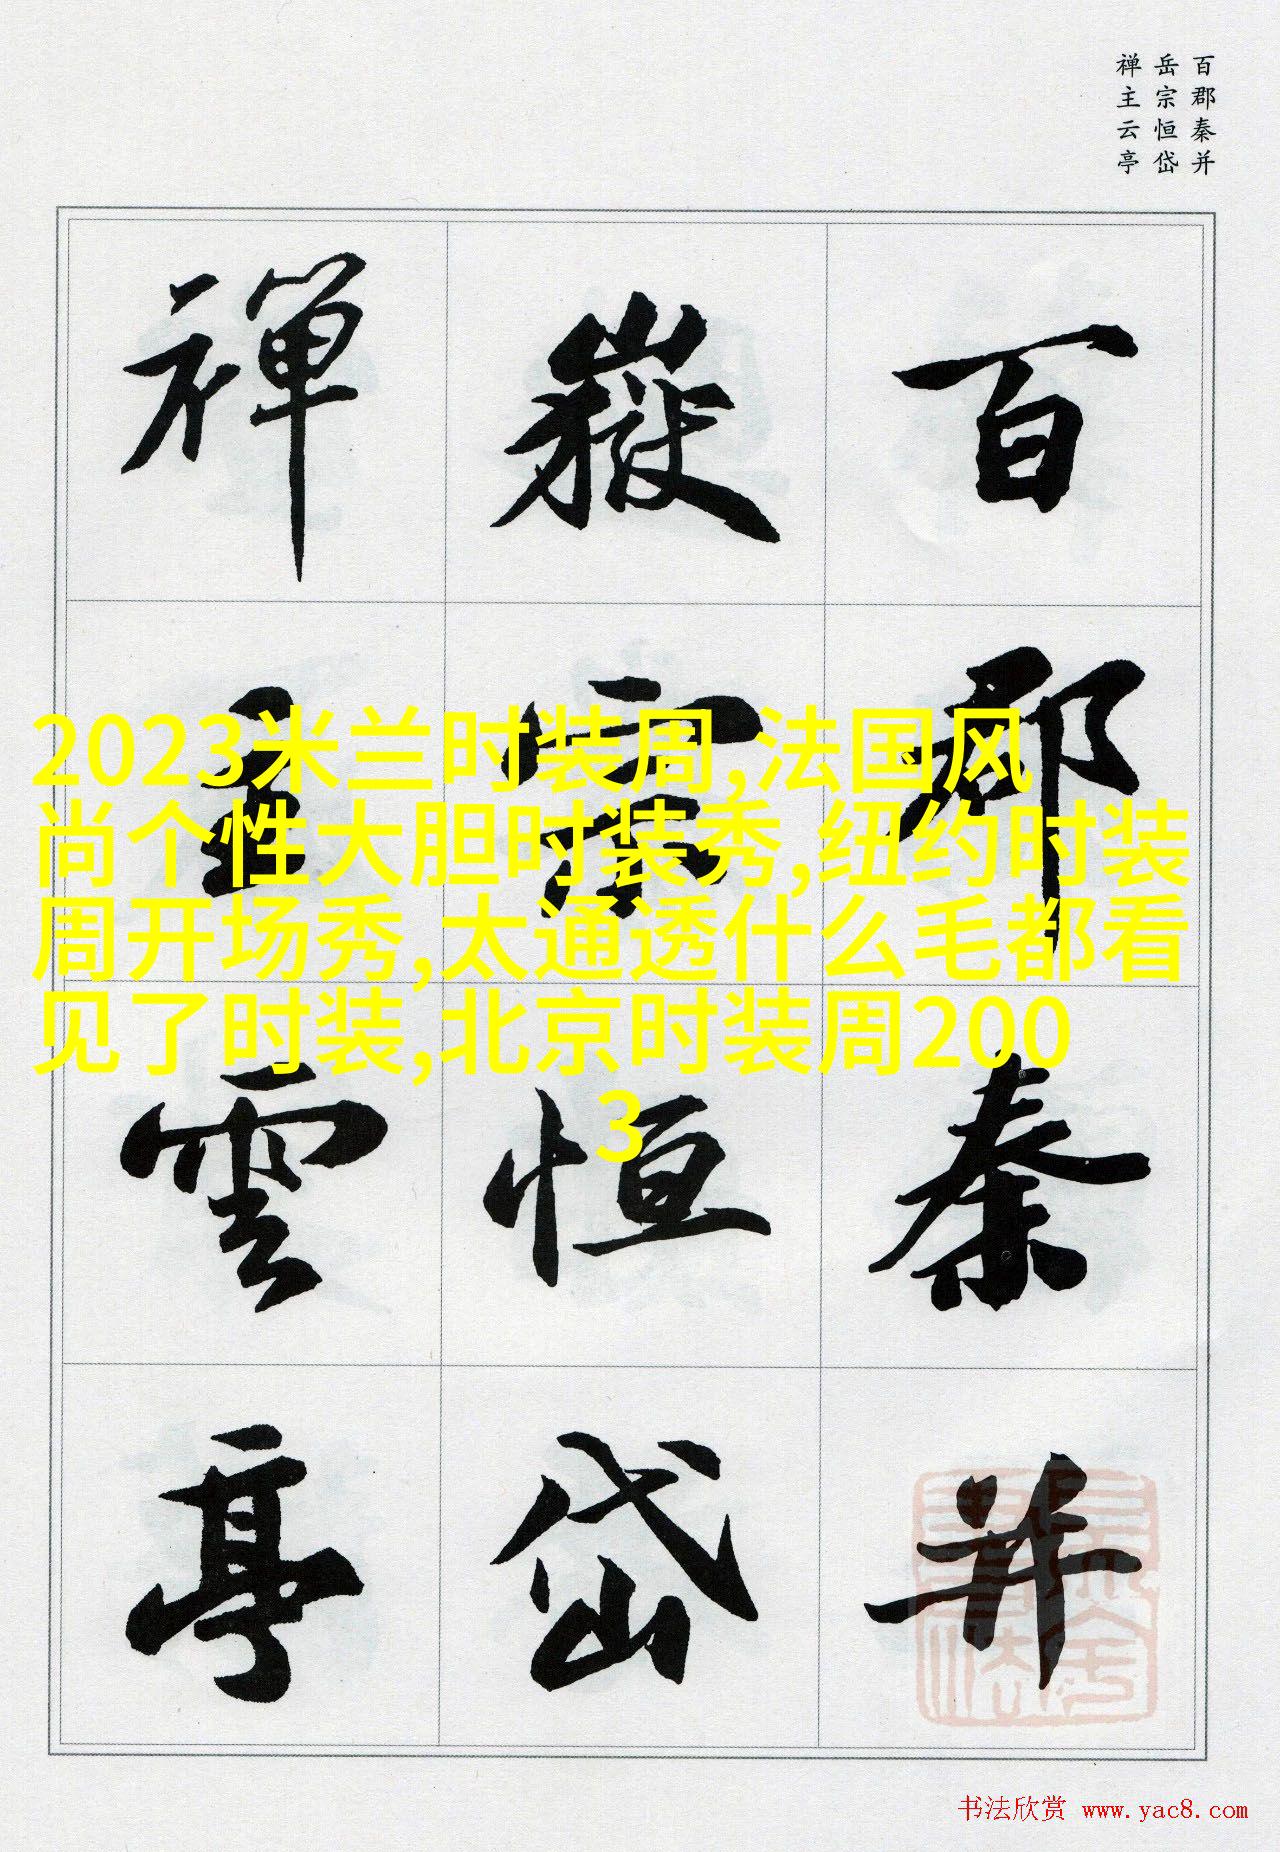 百郡秦并
岳宗恒岱
禅主云亭
百郡秦并
嶽宗恒岱
禪主雲亭
2023米兰时装周,法国风
尚个性大胆时装秀,纽约时装
周开场秀,太通透什么毛都看
见了时装,北京时装周200
3
书法欣赏 www.yac8.com